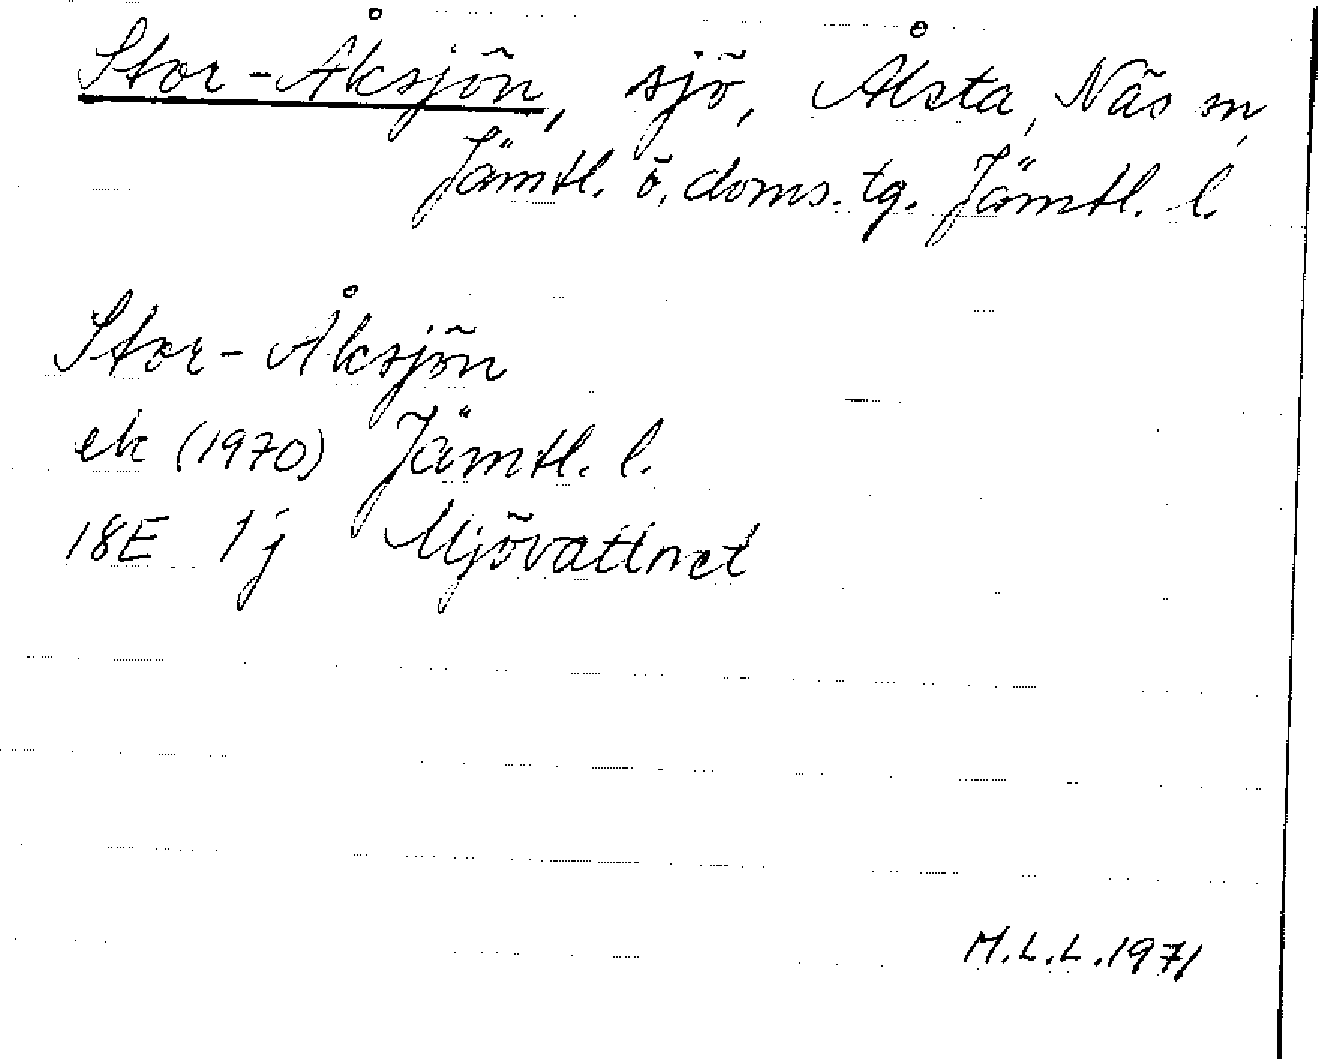 Stor-Åksjön, sjö, Ålsta, Näs sn,
Jämtl. ö. doms. tg. Jämtl. l.
Stor-Åksjön
ek (1970) Jämtl. l.
18E 1j Mjövattnet
M.L.L. 1971